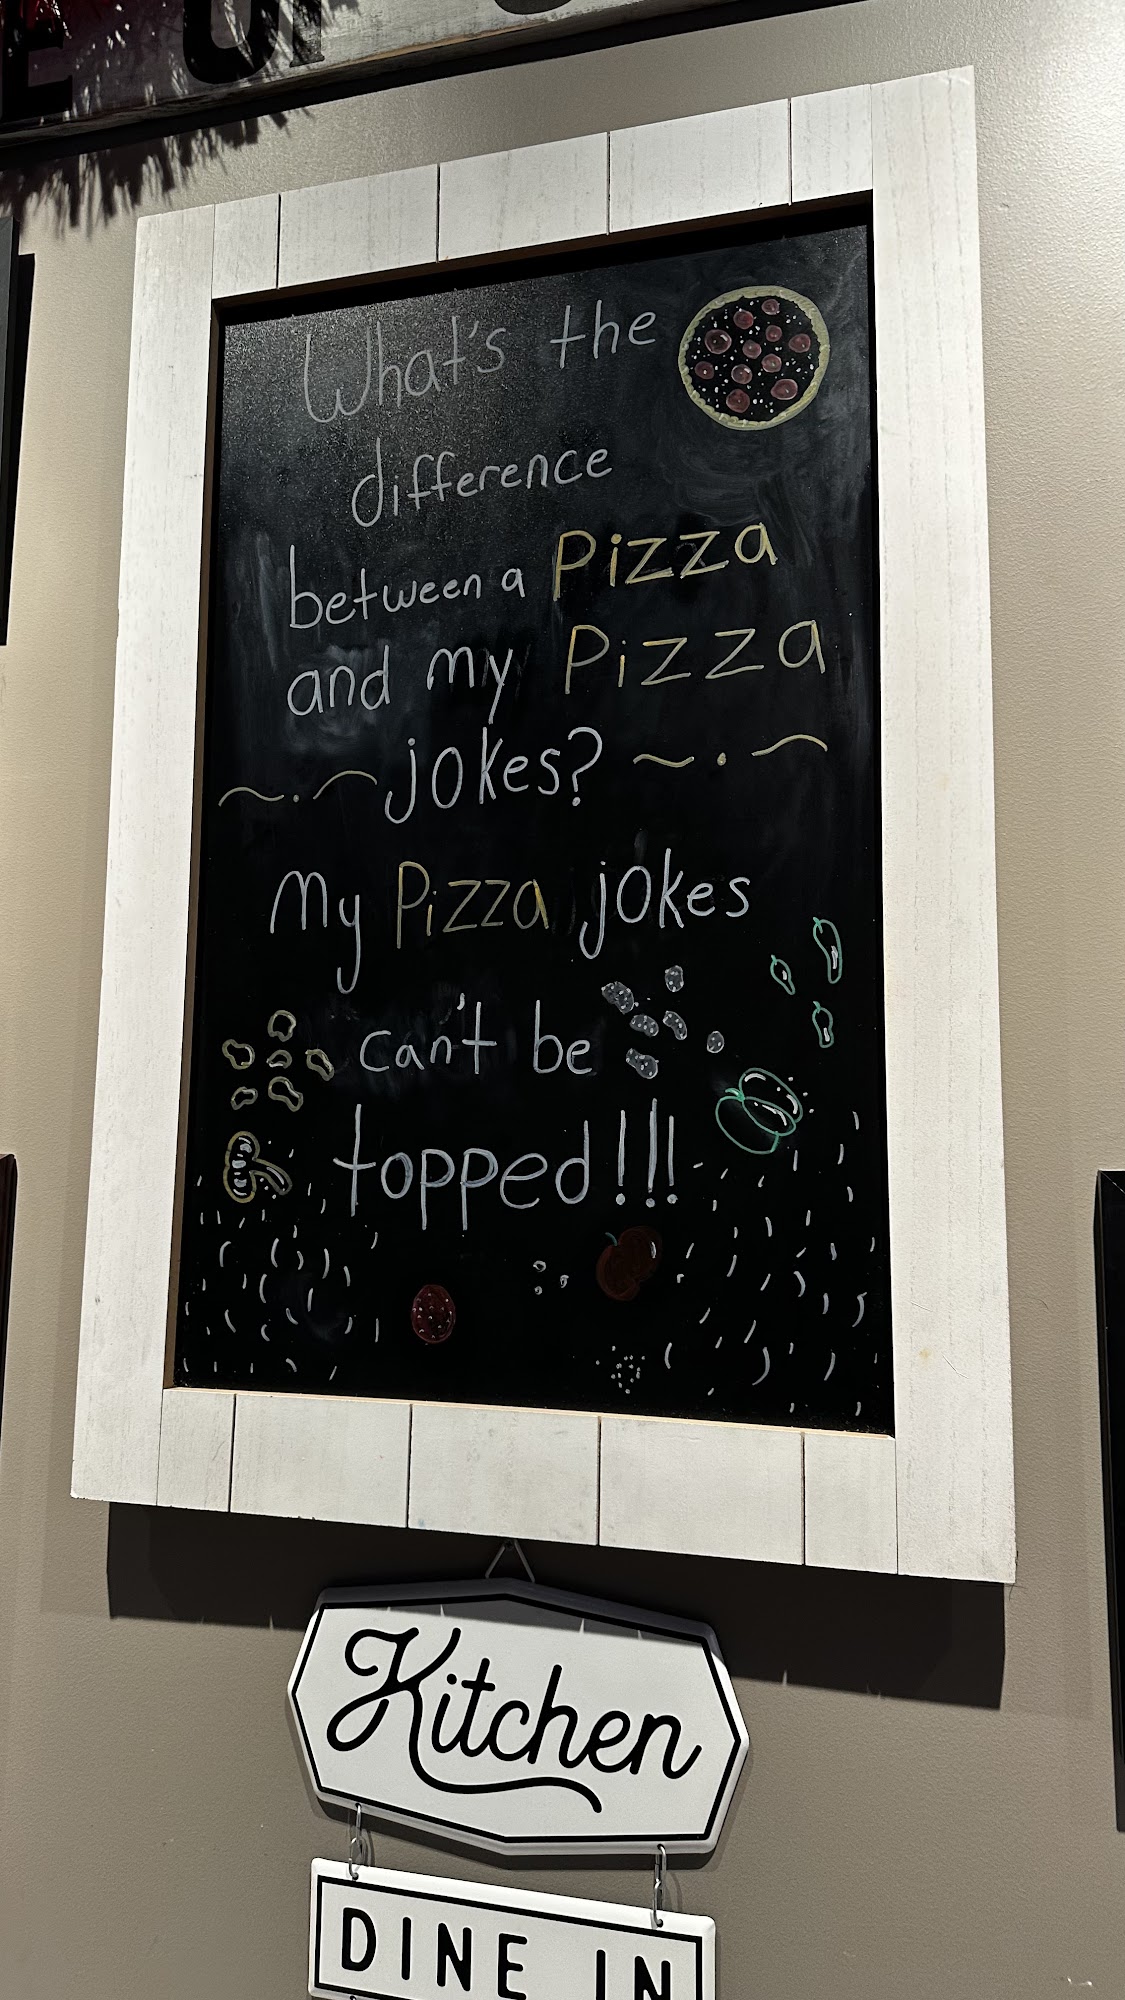 What's the
difference
between a Pizza
and my Pizza
jokes?
My Pizza jokes
can't be
topped!!!
Kitchen
DINE IN